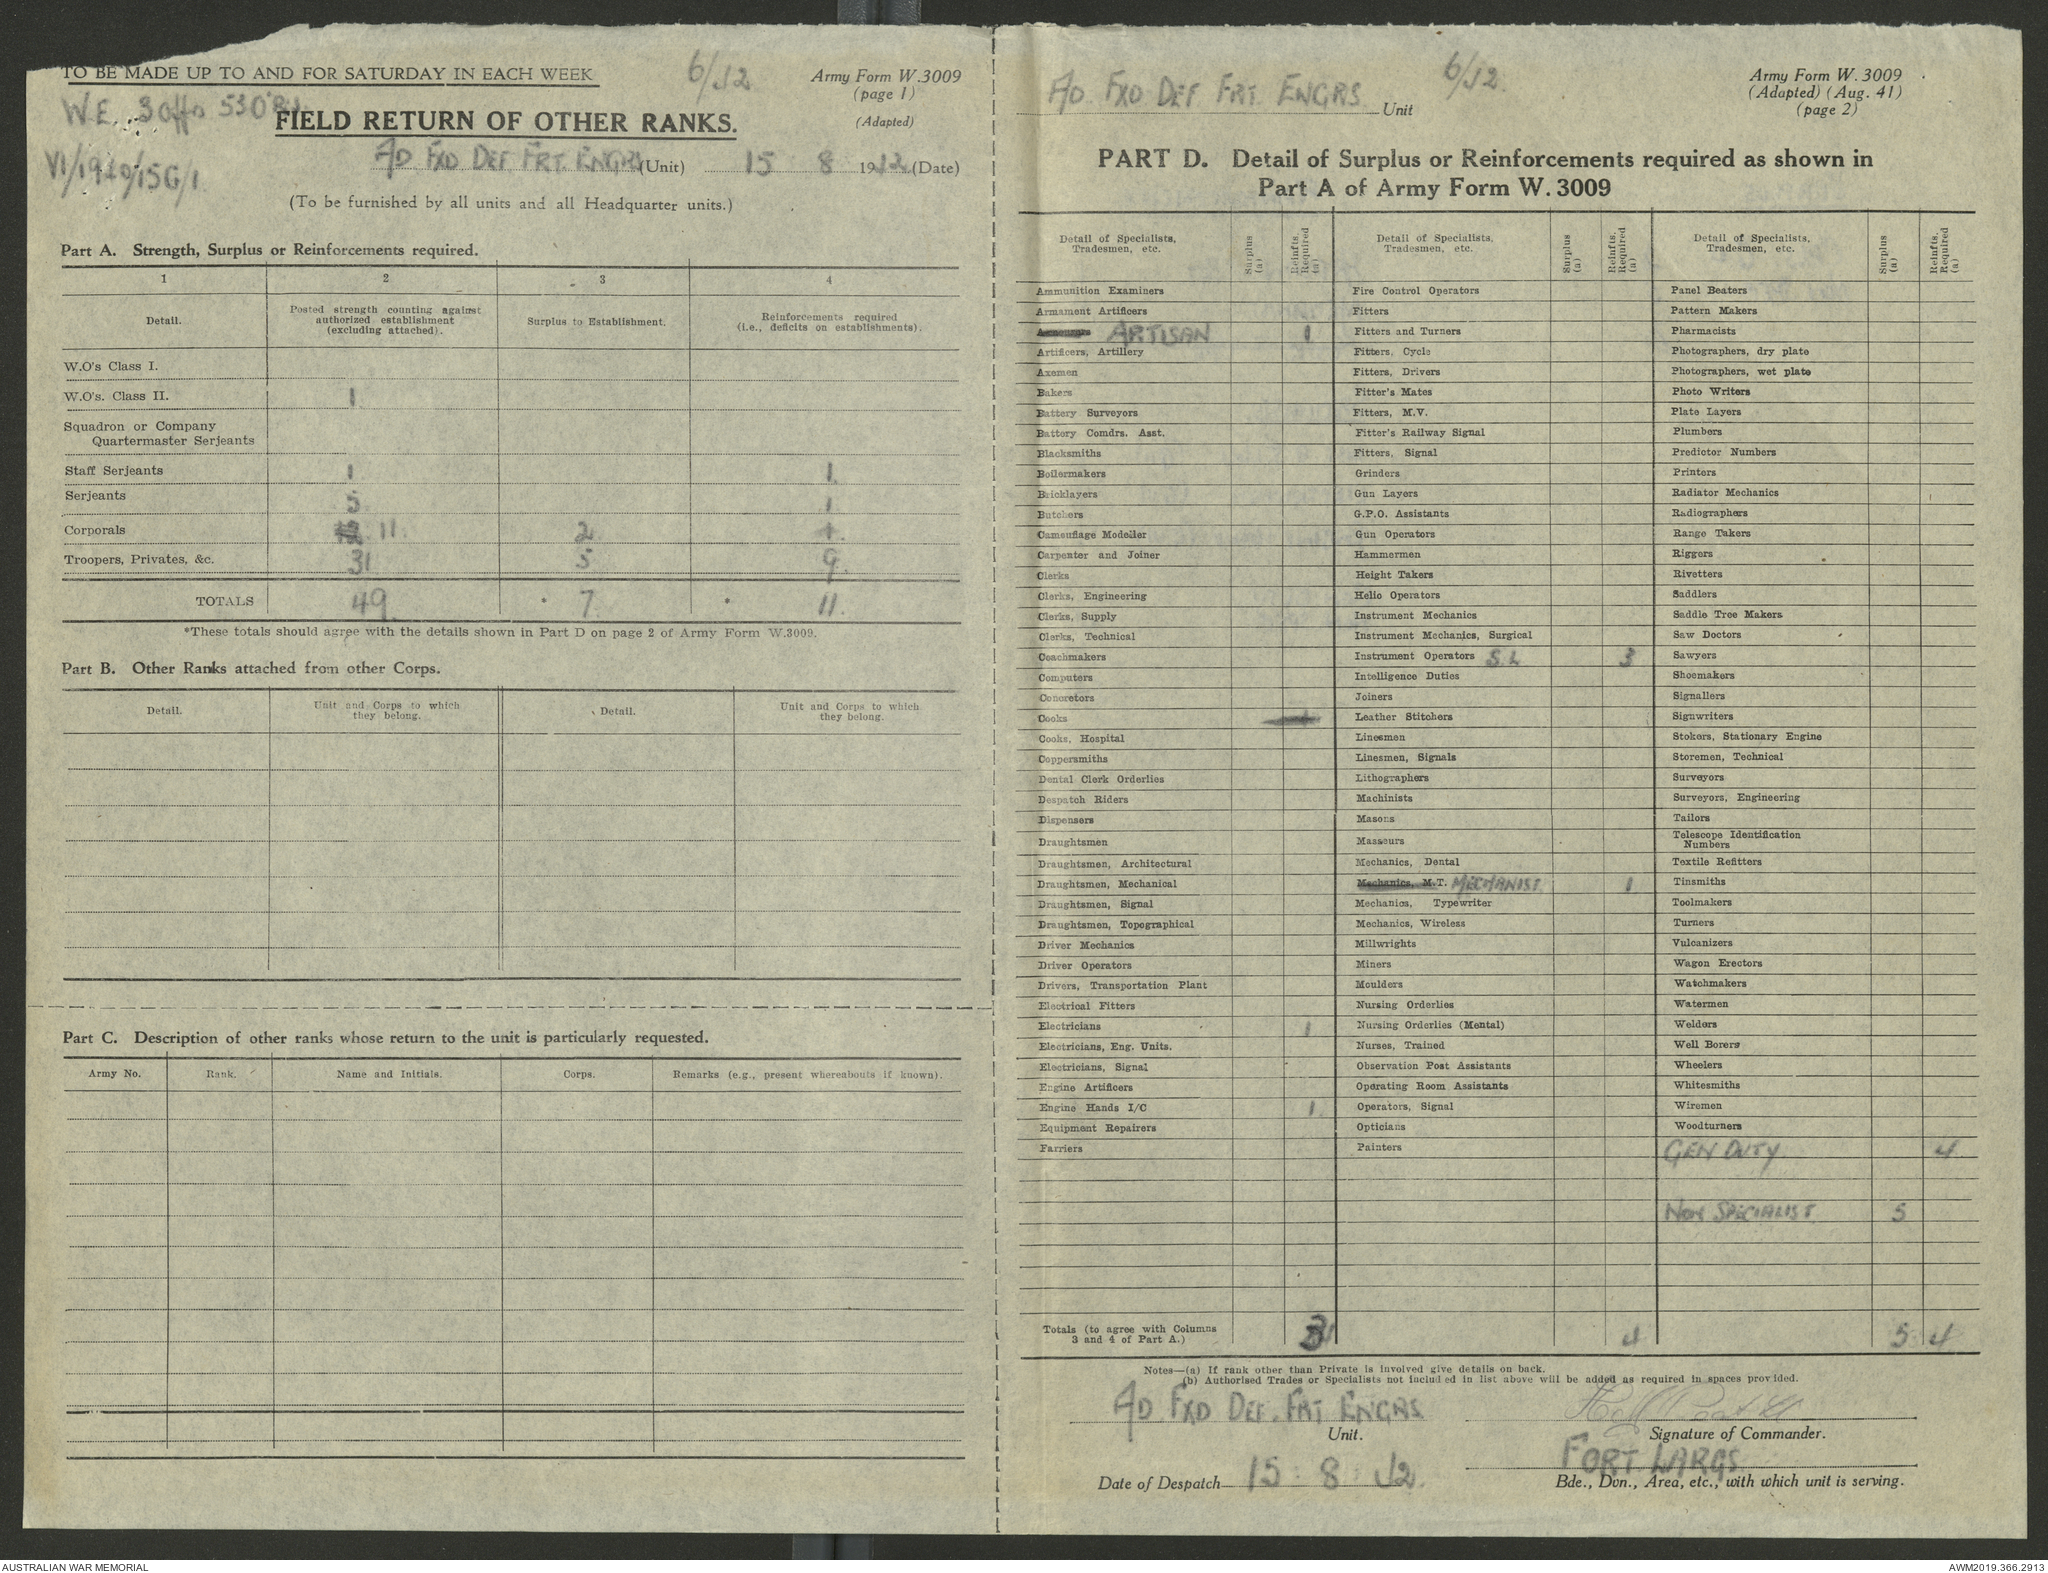 TO BE MADE UP TO AND FOR SATURDAY IN EACH WEEK
6/J2
Army Form W.3009
(page 1)
(Adapted)
W.E. 3 Offo 53 ORs
FIELD RETURN OF OTHER RANKS.
VI/1940/15G/1
A/D FXD DEF FRT. ENGRS (Unit) 15 8 1942 (Date)
(To be furnished by all units and all Headquarter units.)
Part A. Strength, Surplus or Reinforcements required.
1 2 3 4
Detail.
Posted strength counting against authorized establishment (excluding attached).
Surplus to Establishment.
Reinforcements required (i.e., deficits on establishments).
W.O's Class I.
W.O's. Class II. 1
Squadron or Company
Quartermaster Serjeants
Staff Serjeants 1 1
Serjeants 5 1
Corporals 11 2
Troopers, Privates, &c. 31 5 9
TOTALS 49 * 7 * 11
*These totals should agree with the details shown in Part D on page 2 of Army Form W.3009.
Part B. Other Ranks attached from other Corps.
Detail.
Unit and Corps to which they belong.
Detail.
Unit and Corps to which they belong.
Part C. Description of other ranks whose return to the unit is particularly requested.
Army No. Rank. Name and Initials. Corps. Remarks (e.g., present whereabouts if known).
A/D. FXD DEF FRT. ENGRS Unit
6/J2.
Army Form W. 3009
(Adapted) (Aug. 41)
(page 2)
PART D. Detail of Surplus or Reinforcements required as shown in
Part A of Army Form W. 3009
Detail of Specialists, Tradesmen, etc.
Surplus (a)
Reinfts. Required (a)
Ammunition Examiners
Armament Artificers
ARTISAN 1
Artificers, Artillery
Axemen
Bakers
Battery Surveyors
Battery Comdrs. Asst.
Blacksmiths
Boilermakers
Bricklayers
Butchers
Camouflage Modeller
Carpenter and Joiner
Clerks
Clerks, Engineering
Clerks, Supply
Clerks, Technical
Coachmakers
Computers
Concretors
Cooks
Cooks, Hospital
Coppersmiths
Dental Clerk Orderlies
Despatch Riders
Dispensers
Draughtsmen
Draughtsmen, Architectural
Draughtsmen, Mechanical
Draughtsmen, Signal
Draughtsmen, Topographical
Driver Mechanics
Driver Operators
Drivers, Transportation Plant
Electrical Fitters
Electricians 1
Electricians, Eng. Units.
Electricians, Signal
Engine Artificers
Engine Hands I/C 1
Equipment Repairers
Farriers
Detail of Specialists, Tradesmen, etc.
Surplus (a)
Reinfts. Required (a)
Fire Control Operators
Fitters
Fitters and Turners
Fitters, Cycle
Fitters, Drivers
Fitter's Mates
Fitters, M.V.
Fitter's Railway Signal
Fitters, Signal
Grinders
Gun Layers
G.P.O. Assistants
Gun Operators
Hammermen
Height Takers
Helio Operators
Instrument Mechanics
Instrument Mechanics, Surgical
Instrument Operators S.L 3
Intelligence Duties
Joiners
Leather Stitchers
Linesmen
Linesmen, Signals
Lithographers
Machinists
Masons
Masseurs
Mechanics, Dental
Mechanics, M.T. MECHANIST. 1
Mechanics, Typewriter
Mechanics, Wireless
Millwrights
Miners
Moulders
Nursing Orderlies
Nursing Orderlies (Mental)
Nurses, Trained
Observation Post Assistants
Operating Room Assistants
Operators, Signal
Opticians
Painters
Detail of Specialists, Tradesmen, etc.
Surplus (a)
Reinfts. Required (a)
Panel Beaters
Pattern Makers
Pharmacists
Photographers, dry plate
Photographers, wet plate
Photo Writers
Plate Layers
Plumbers
Predictor Numbers
Printers
Radiator Mechanics
Radiographers
Range Takers
Riggers
Rivetters
Saddlers
Saddle Tree Makers
Saw Doctors
Sawyers
Shoemakers
Signallers
Signwriters
Stokers, Stationary Engine
Storemen, Technical
Surveyors
Surveyors, Engineering
Tailors
Telescope Identification
Numbers
Textile Refitters
Tinsmiths
Toolmakers
Turners
Vulcanizers
Wagon Erectors
Watchmakers
Watermen
Welders
Well Borers
Wheelers
Whitesmiths
Wiremen
Woodturners
GEN DUTY 4
NON SPECIALIST 5
Totals (to agree with Columns
3 and 4 of Part A.) 3 4 5 4
Notes—(a) If rank other than Private is involved give details on back.
(b) Authorised Trades or Specialists not included in list above will be added as required in spaces provided.
A/D. FXD DEF. FRT ENGRS
Unit.
Signature of Commander.
FORT LARGS
Date of Despatch 15 : 8 : 42
Bde., Dvn., Area, etc., with which unit is serving.
AUSTRALIAN WAR MEMORIAL
AWM2019.366.2913